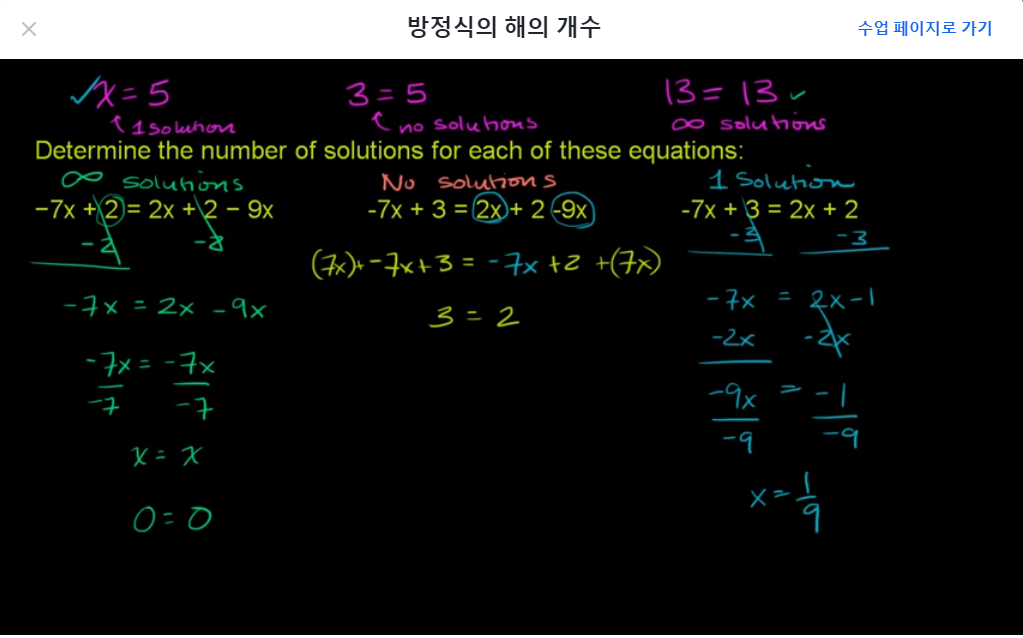 방정식의 해의 개수
수업 페이지로 가기
✓x = 5
3 = 5
13 = 13 ✓
↑ 1 solution
↑ no solutions
∞ solutions
Determine the number of solutions for each of these equations:
∞ solutions
-7x + 2 = 2x + 2 - 9x
-2 -2
-7x = 2x - 9x
-7x = -7x
-7 -7
x = x
0 = 0
No solutions
-7x + 3 = 2x + 2 -9x
(7x)+ -7x+3 = -7x +2 +(7x)
3 = 2
1 Solution
-7x + 3 = 2x + 2
-3 -3
-7x = 2x-1
-2x -2x
-9x = -1
-9 -9
x = 1/9